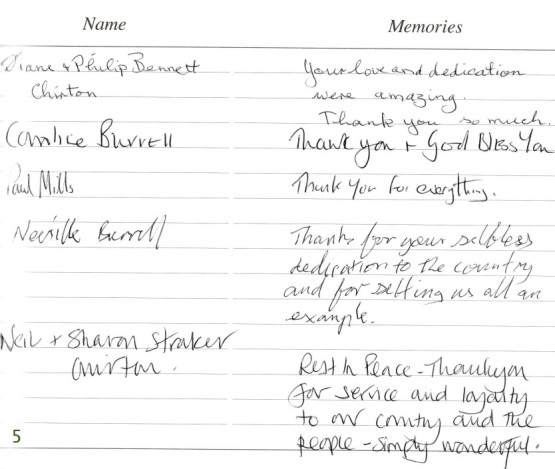 Name Memories
Diane & Philip Bennett Your love and dedication
Chirton were amazing.
Thank you so much.
Candice Burrell Thank you + God Bless You
Paul Mills Thank You for everything.
Neville Burrell Thanks for your selfless
dedication to the country
and for setting us all an
example.
Neil + Sharon Straker
Chirton. Rest In Peace - Thankyou
for service and loyalty
to our country and the
5 people - simply wonderful.